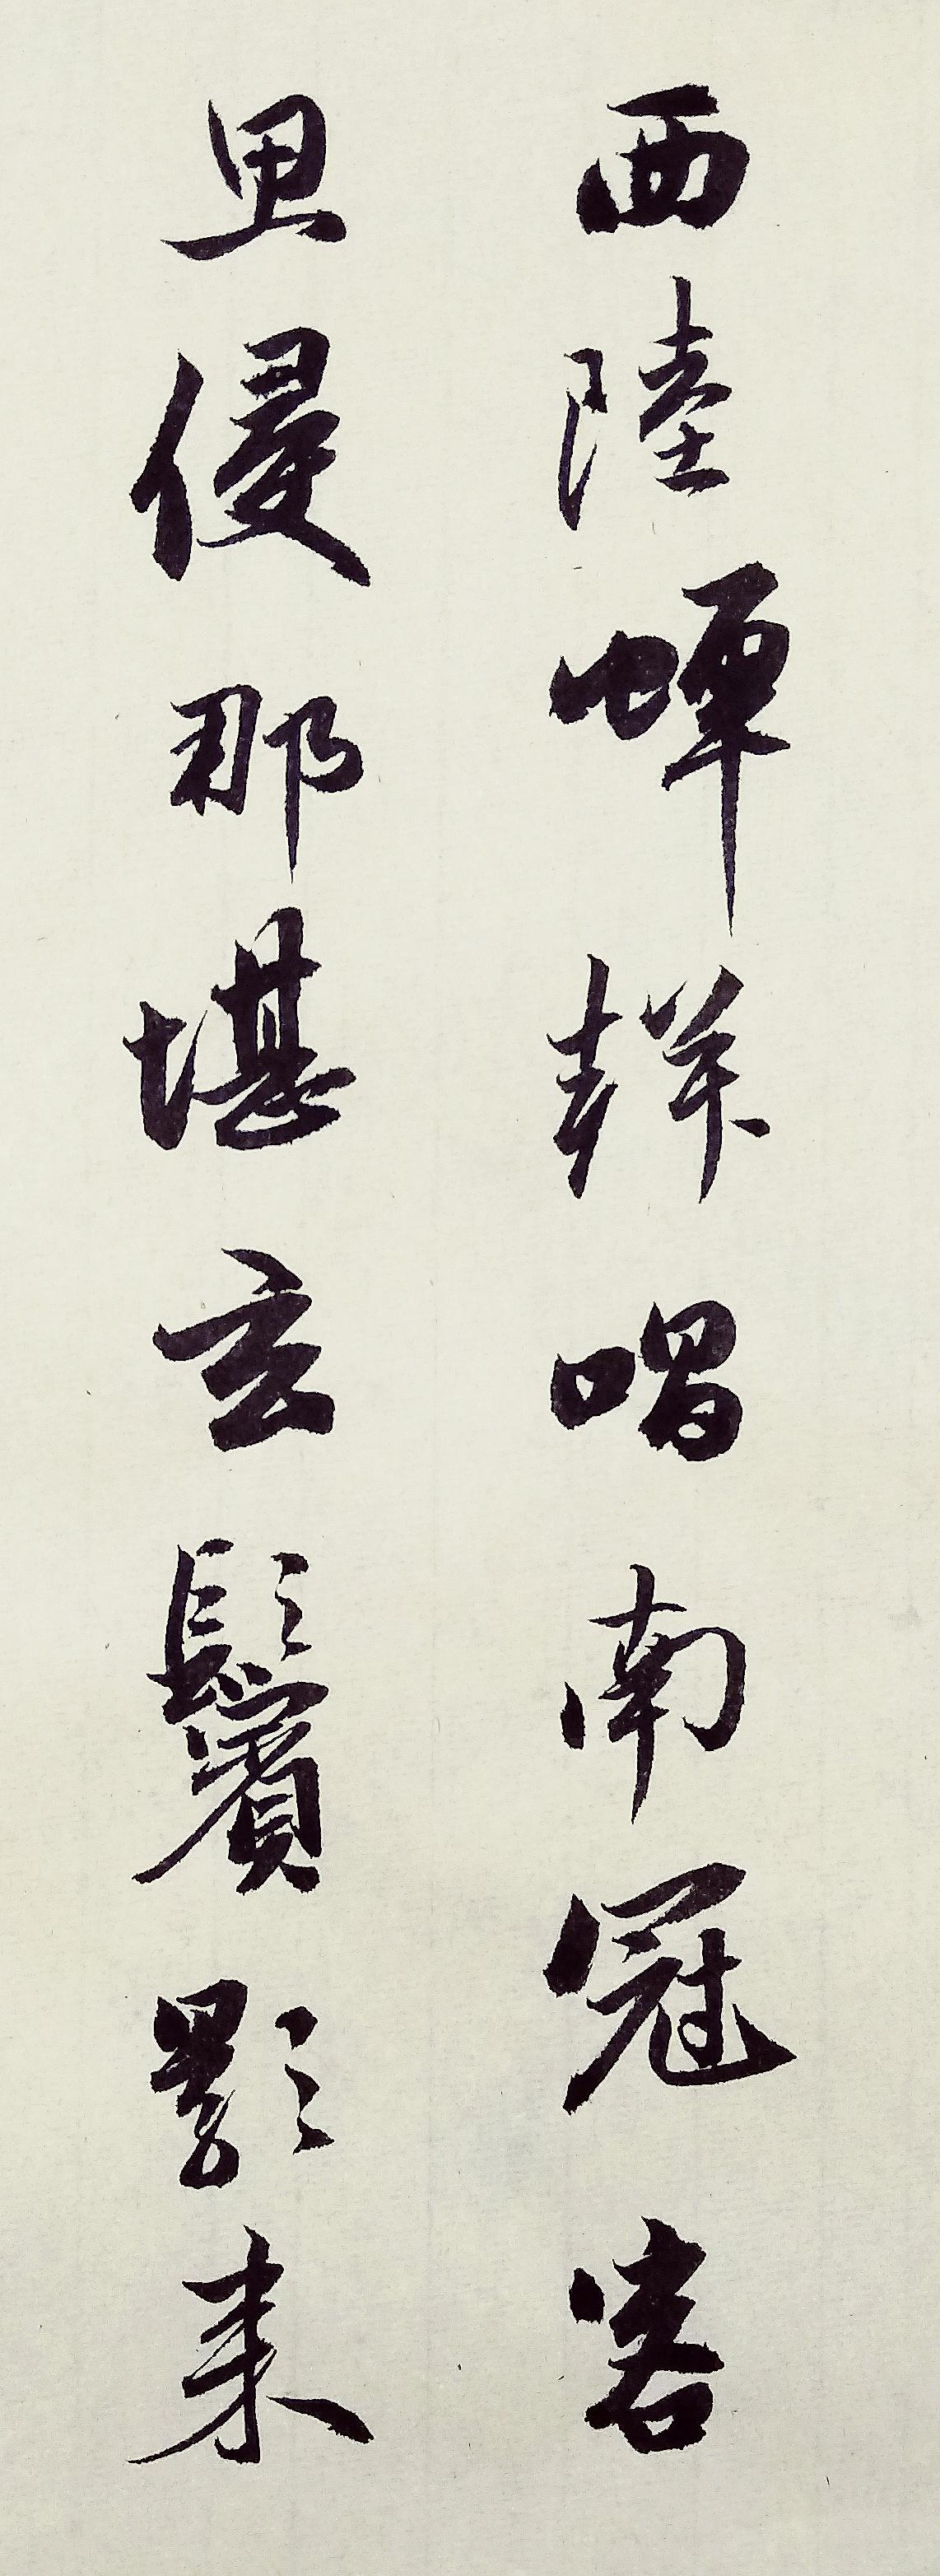 西陸蟬聲唱南冠客
思侵那堪玄鬢影来